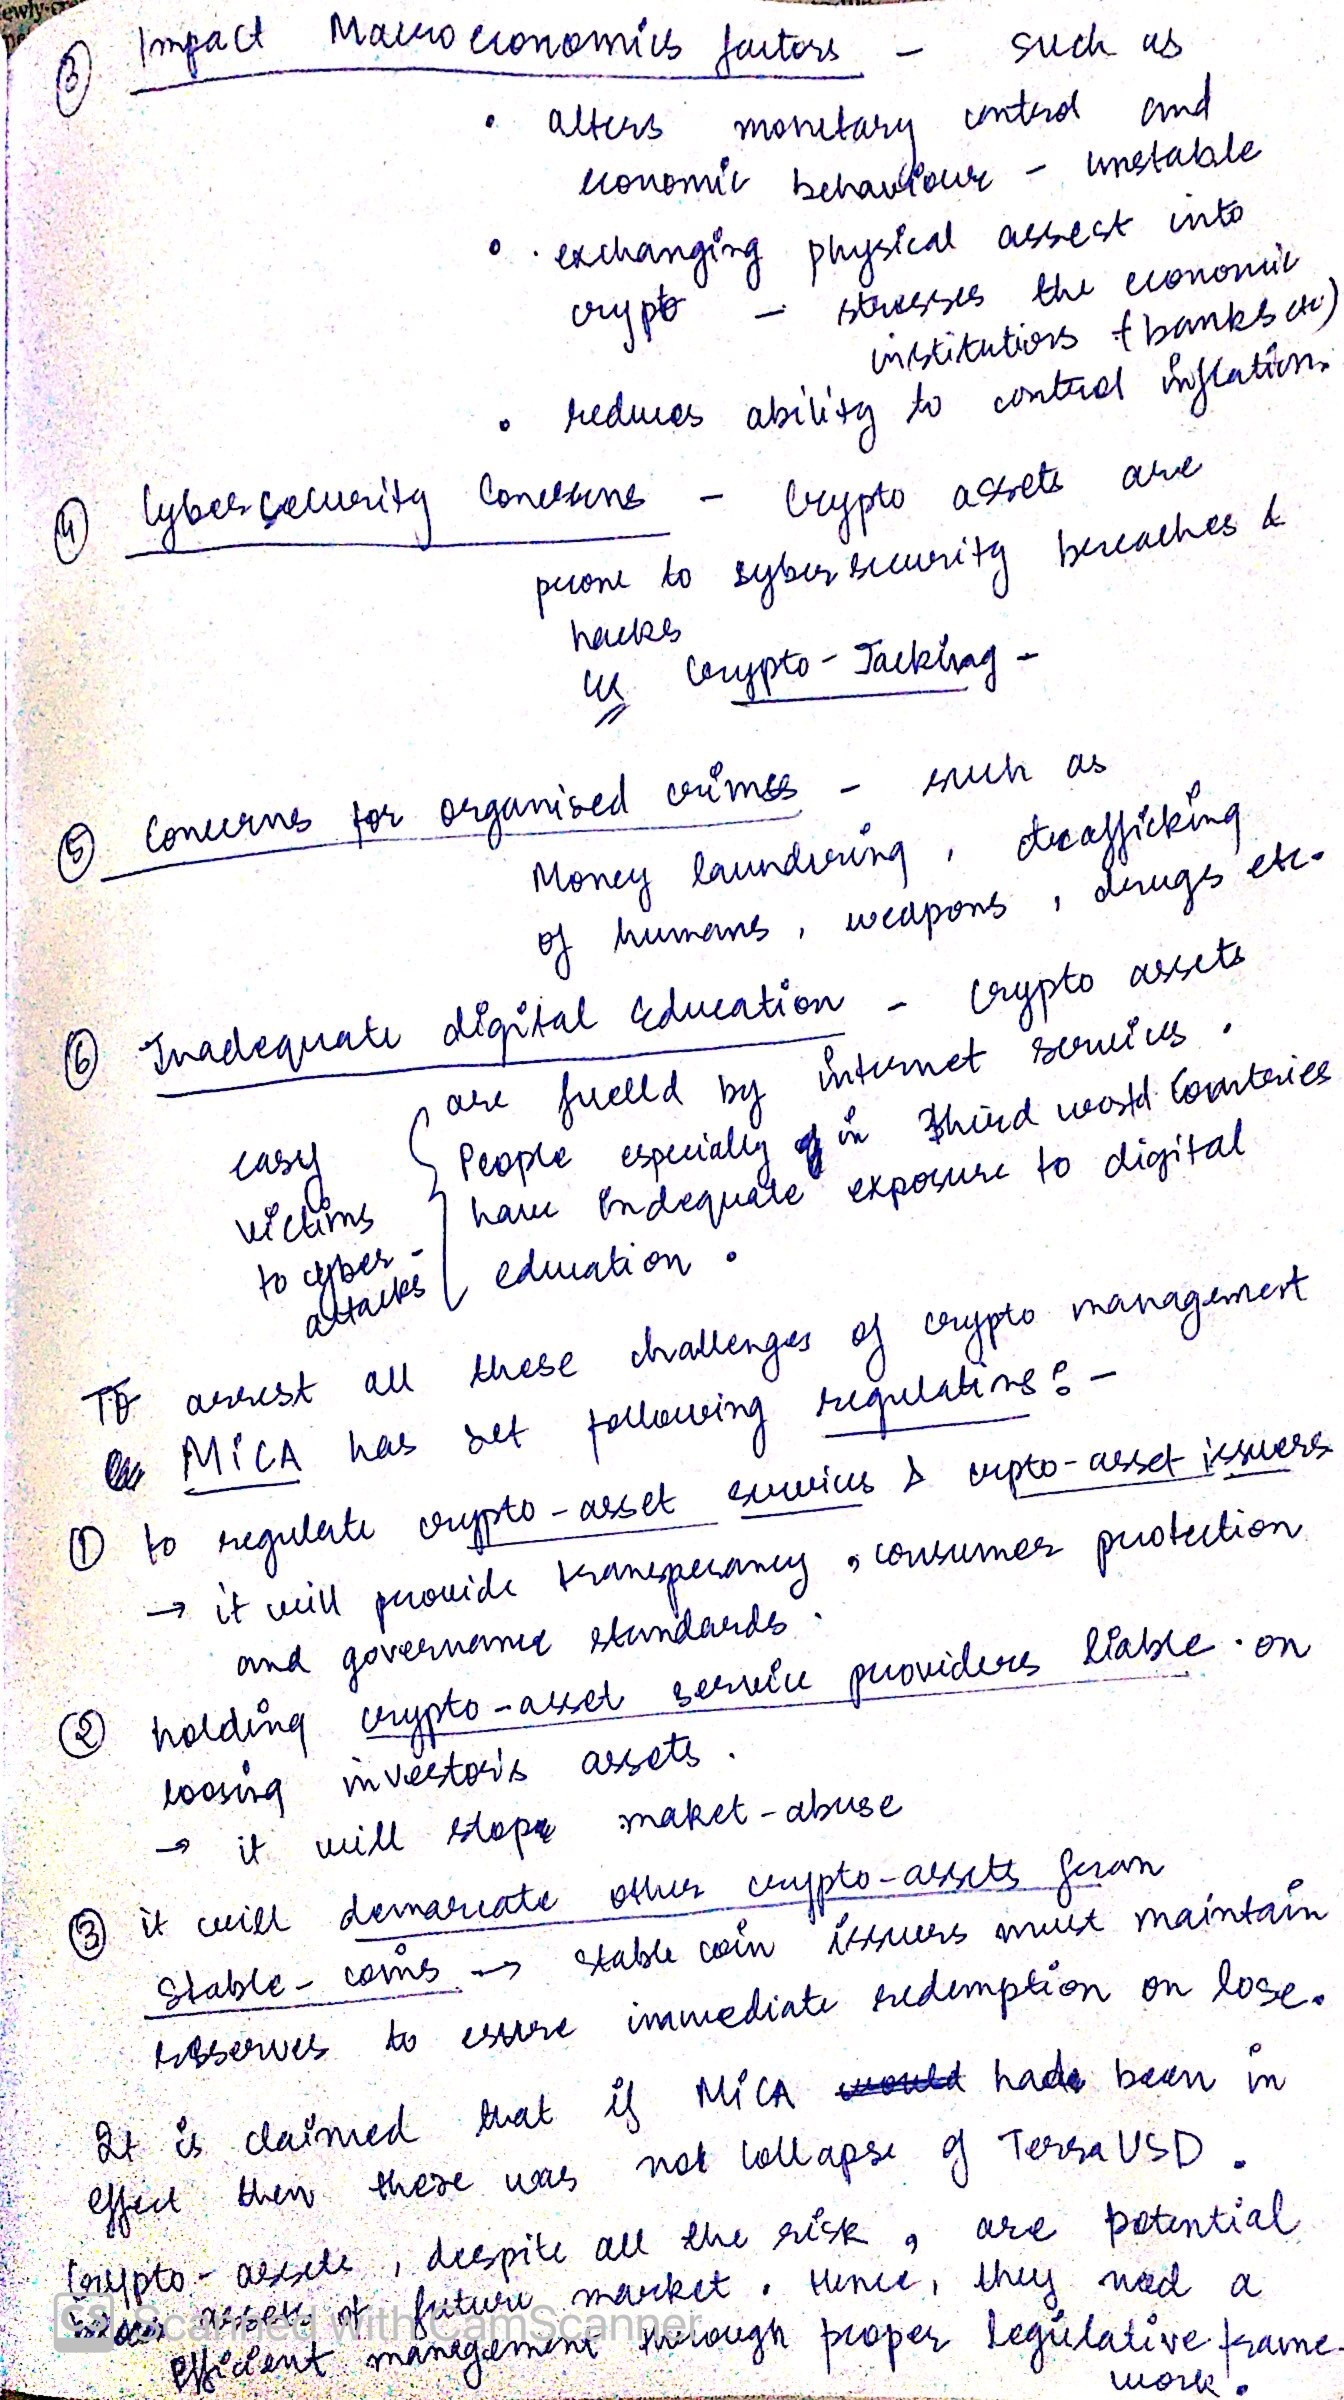 ③ Impact Macroeconomics factors - such as
• alters monetary control and
economic behaviour - unstable
• exchanging physical assest into
crypto - stresses the economic
institutions (banks etc)
• reduces ability to control inflation.
④ Cybersecurity Concerns - Crypto assets are
prone to syber security breaches &
hacks
eg Crypto-Jacking -
⑤ Concerns for organised crimes - such as
Money laundering, trafficking
of humans, weapons, drugs etc.
⑥ Inadequate digital Education - Crypto assets
are fuelld by internet services.
People especially in third world Countries
have indequate exposure to digital
education.
easy
victims
to cyber-
attacks
To arrest all these challenges of crypto management
MiCA has set following regulations:-
① to regulate crypto-asset services & crpto-asset issuers
→ it will provide transperancy, consumer protection
and governance standards.
② holding crypto-asset service providers liable on
loosing investor's assets.
→ it will stop maket-abuse
③ it will demarcate other crypto-assets from
Stable-coins → stable coin issuers must maintain
reserves to essure immediate redemption on lose.
It is claimed that if MiCA had been in
effect then there was not collapse of Terra USD.
Crypto-assets, despite all the risk, are potential
assets of future market. Hence, they need a
efficient management through proper legislative frame-
work.
CS Scanned with CamScanner